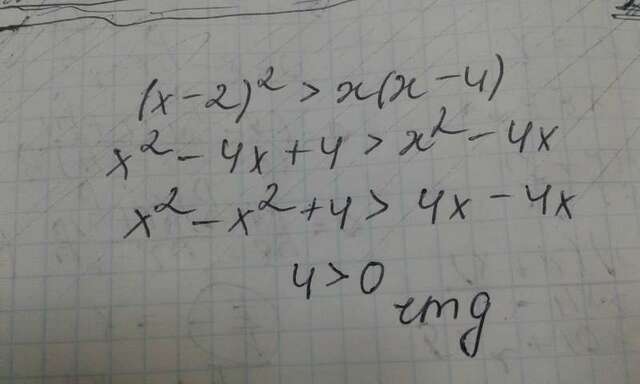 (x-2)² > x(x-4)
x² - 4x + 4 > x² - 4x
x² - x² + 4 > 4x - 4x
4 > 0